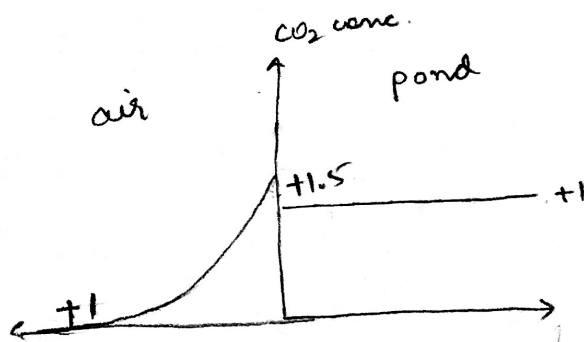 CO2 conc.
air
pond
+1.5
+1
+1